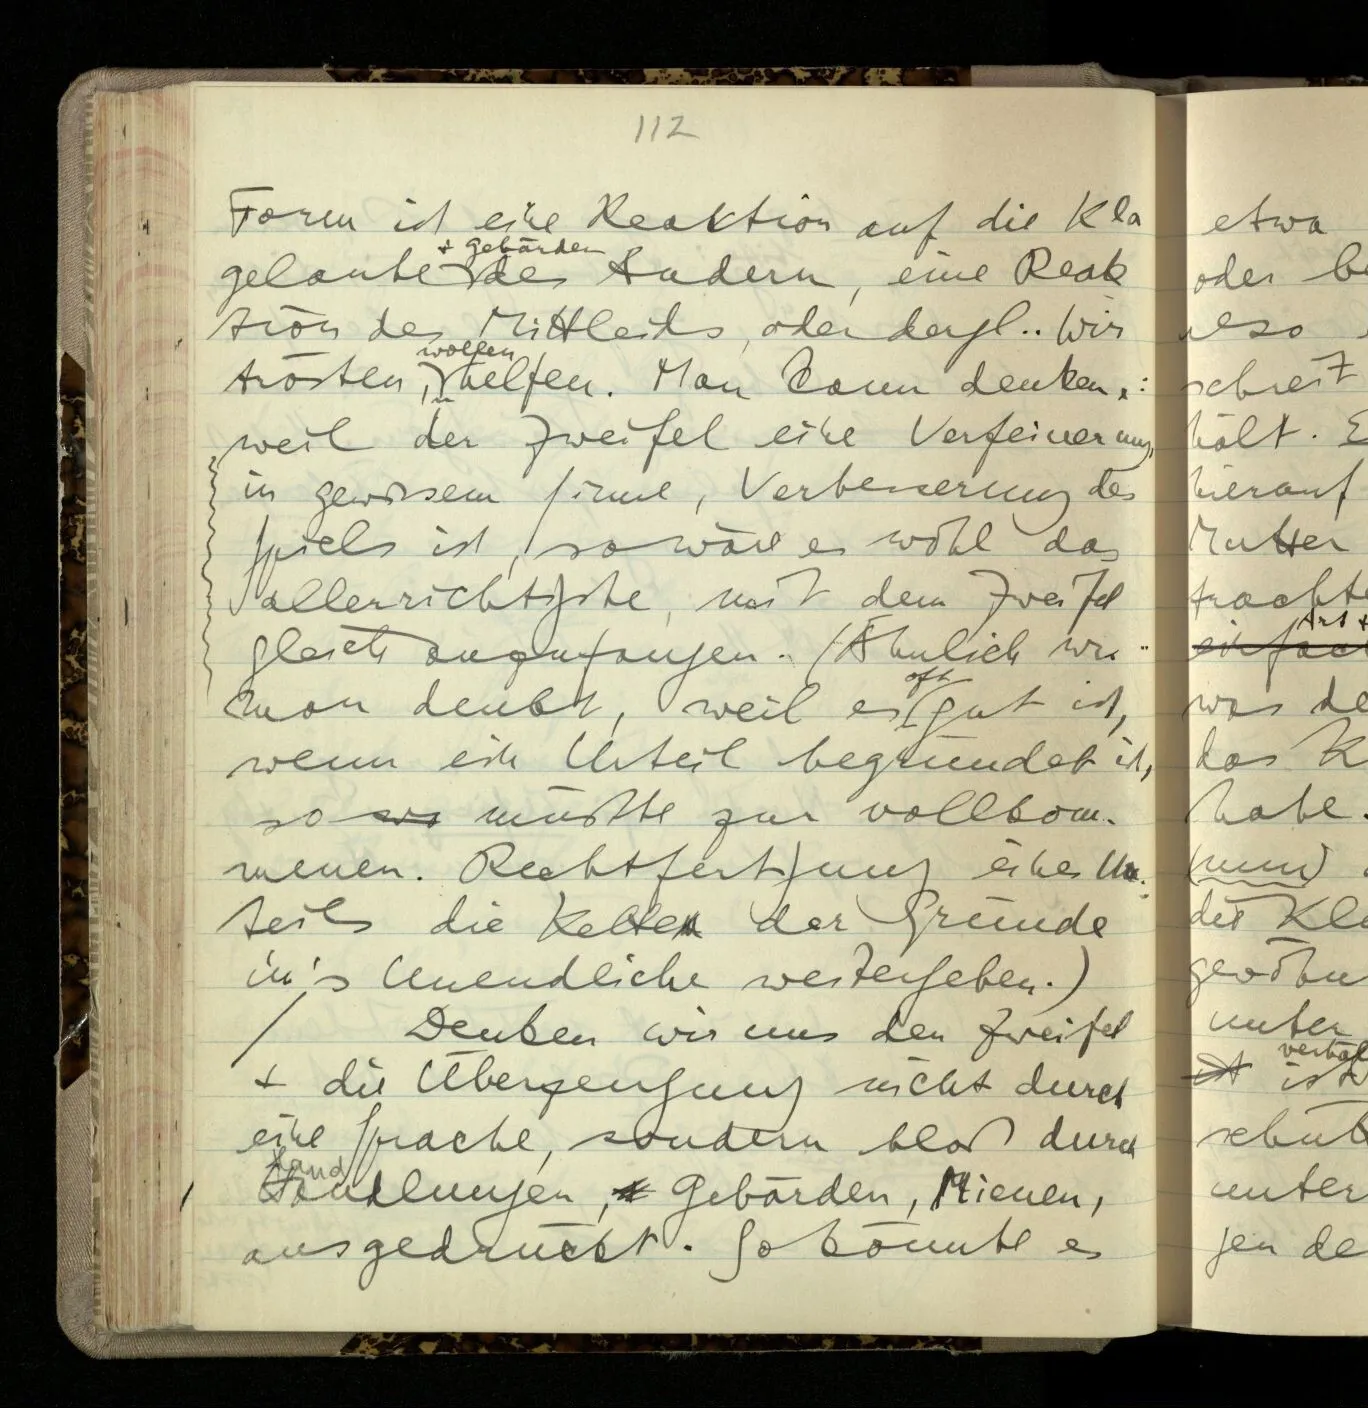 112
Form ist eine Reaktion auf die Kla
+ Gebärden
gelaute des Andern, eine Reak
tion des Mitleids, oder dergl.. Wir
wollen
trösten, helfen. Man kann denken,:
weil der Zweifel eine Verfeinerung,
in gewissem Sinne, Verbesserung des
Spiels ist, so wäre es wohl das
allerrichtigste, mit dem Zweifel
gleich anzufangen. (Ähnlich wie
man denkt, weil es gut ist,
oft
wenn ein Urteil begründet ist,
so müßte zur vollkom-
menen Rechtfertigung eines Ur-
teils die Kette der Gründe
in's Unendliche weitergehen.)
/ Denken wir uns den Zweifel
+ die Überzeugung nicht durch
eine Sprache, sondern bloß durch
Hand
Handlungen, Gebärden, Mienen,
ausgedrückt. So könnte es
etwa
oder be
also
schreit
hält. E
hierauf
Mutter
trachte
Art +
einfach
was de
das K
habe.
(nun)
des Kla
gewöhn
unter
verhäl
ist
schut
unter
gen de